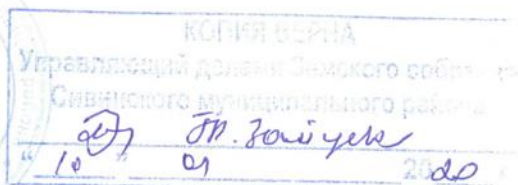 КОПИЯ ВЕРНА
Управляющий делами Земского
Сивинского муниципального района
" 10 " 01 2020